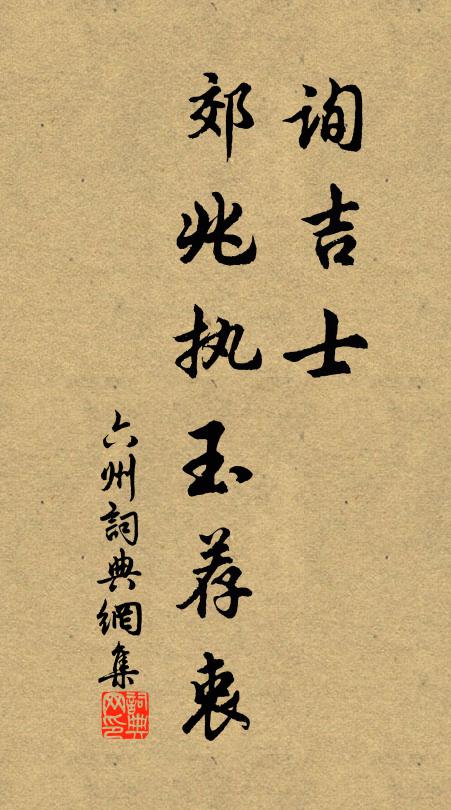 询吉士
郊兆执玉荐衷
六州詞典網集
詞典网印